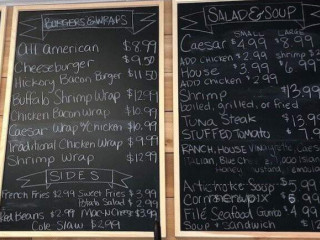 BURGERS & WRAPS
All American $8.99
Cheeseburger $9.50
Hickory Bacon Burger $11.50
Buffalo Shrimp Wrap $12.99
Chicken Bacon Wrap $10.99
Caesar Wrap w/ Chicken $10.99
Traditional Chicken Wrap $9.99
Shrimp Wrap $12.99
SIDES
French Fries $2.99 Sweet Fries $3.99
Potato Salad $2.99
Baked Beans $2.99 Mac-N-Cheese $3.99
Cole Slaw $2.99
SALAD & SOUP
SMALL LARGE
Caesar $4.99 $8.59
ADD CHICKEN $2.99 SHRIMP
House $ 6.99
ADD CHICKEN $2.99
Shrimp $13.99
boiled, grilled, or fried
Tuna Steak $13.99
STUFFED TOMATO $7.9
RANCH, HOUSE Caesar
Italian, Blue 1000 Island
Honey
Artichoke Soup $5.99
Corn $5.99
Filé Seafood Gumbo $4.99
Soup & Sandwich $12